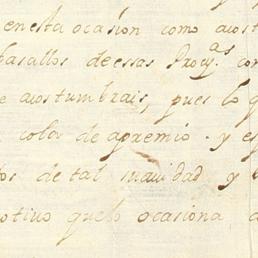 enesta ocasion como acost
basallos de essas Prov.as con
e acostumbrais, pues lo q
color de apremio. y es
os de tal suavidad y e
otivo quelo ocasiona a